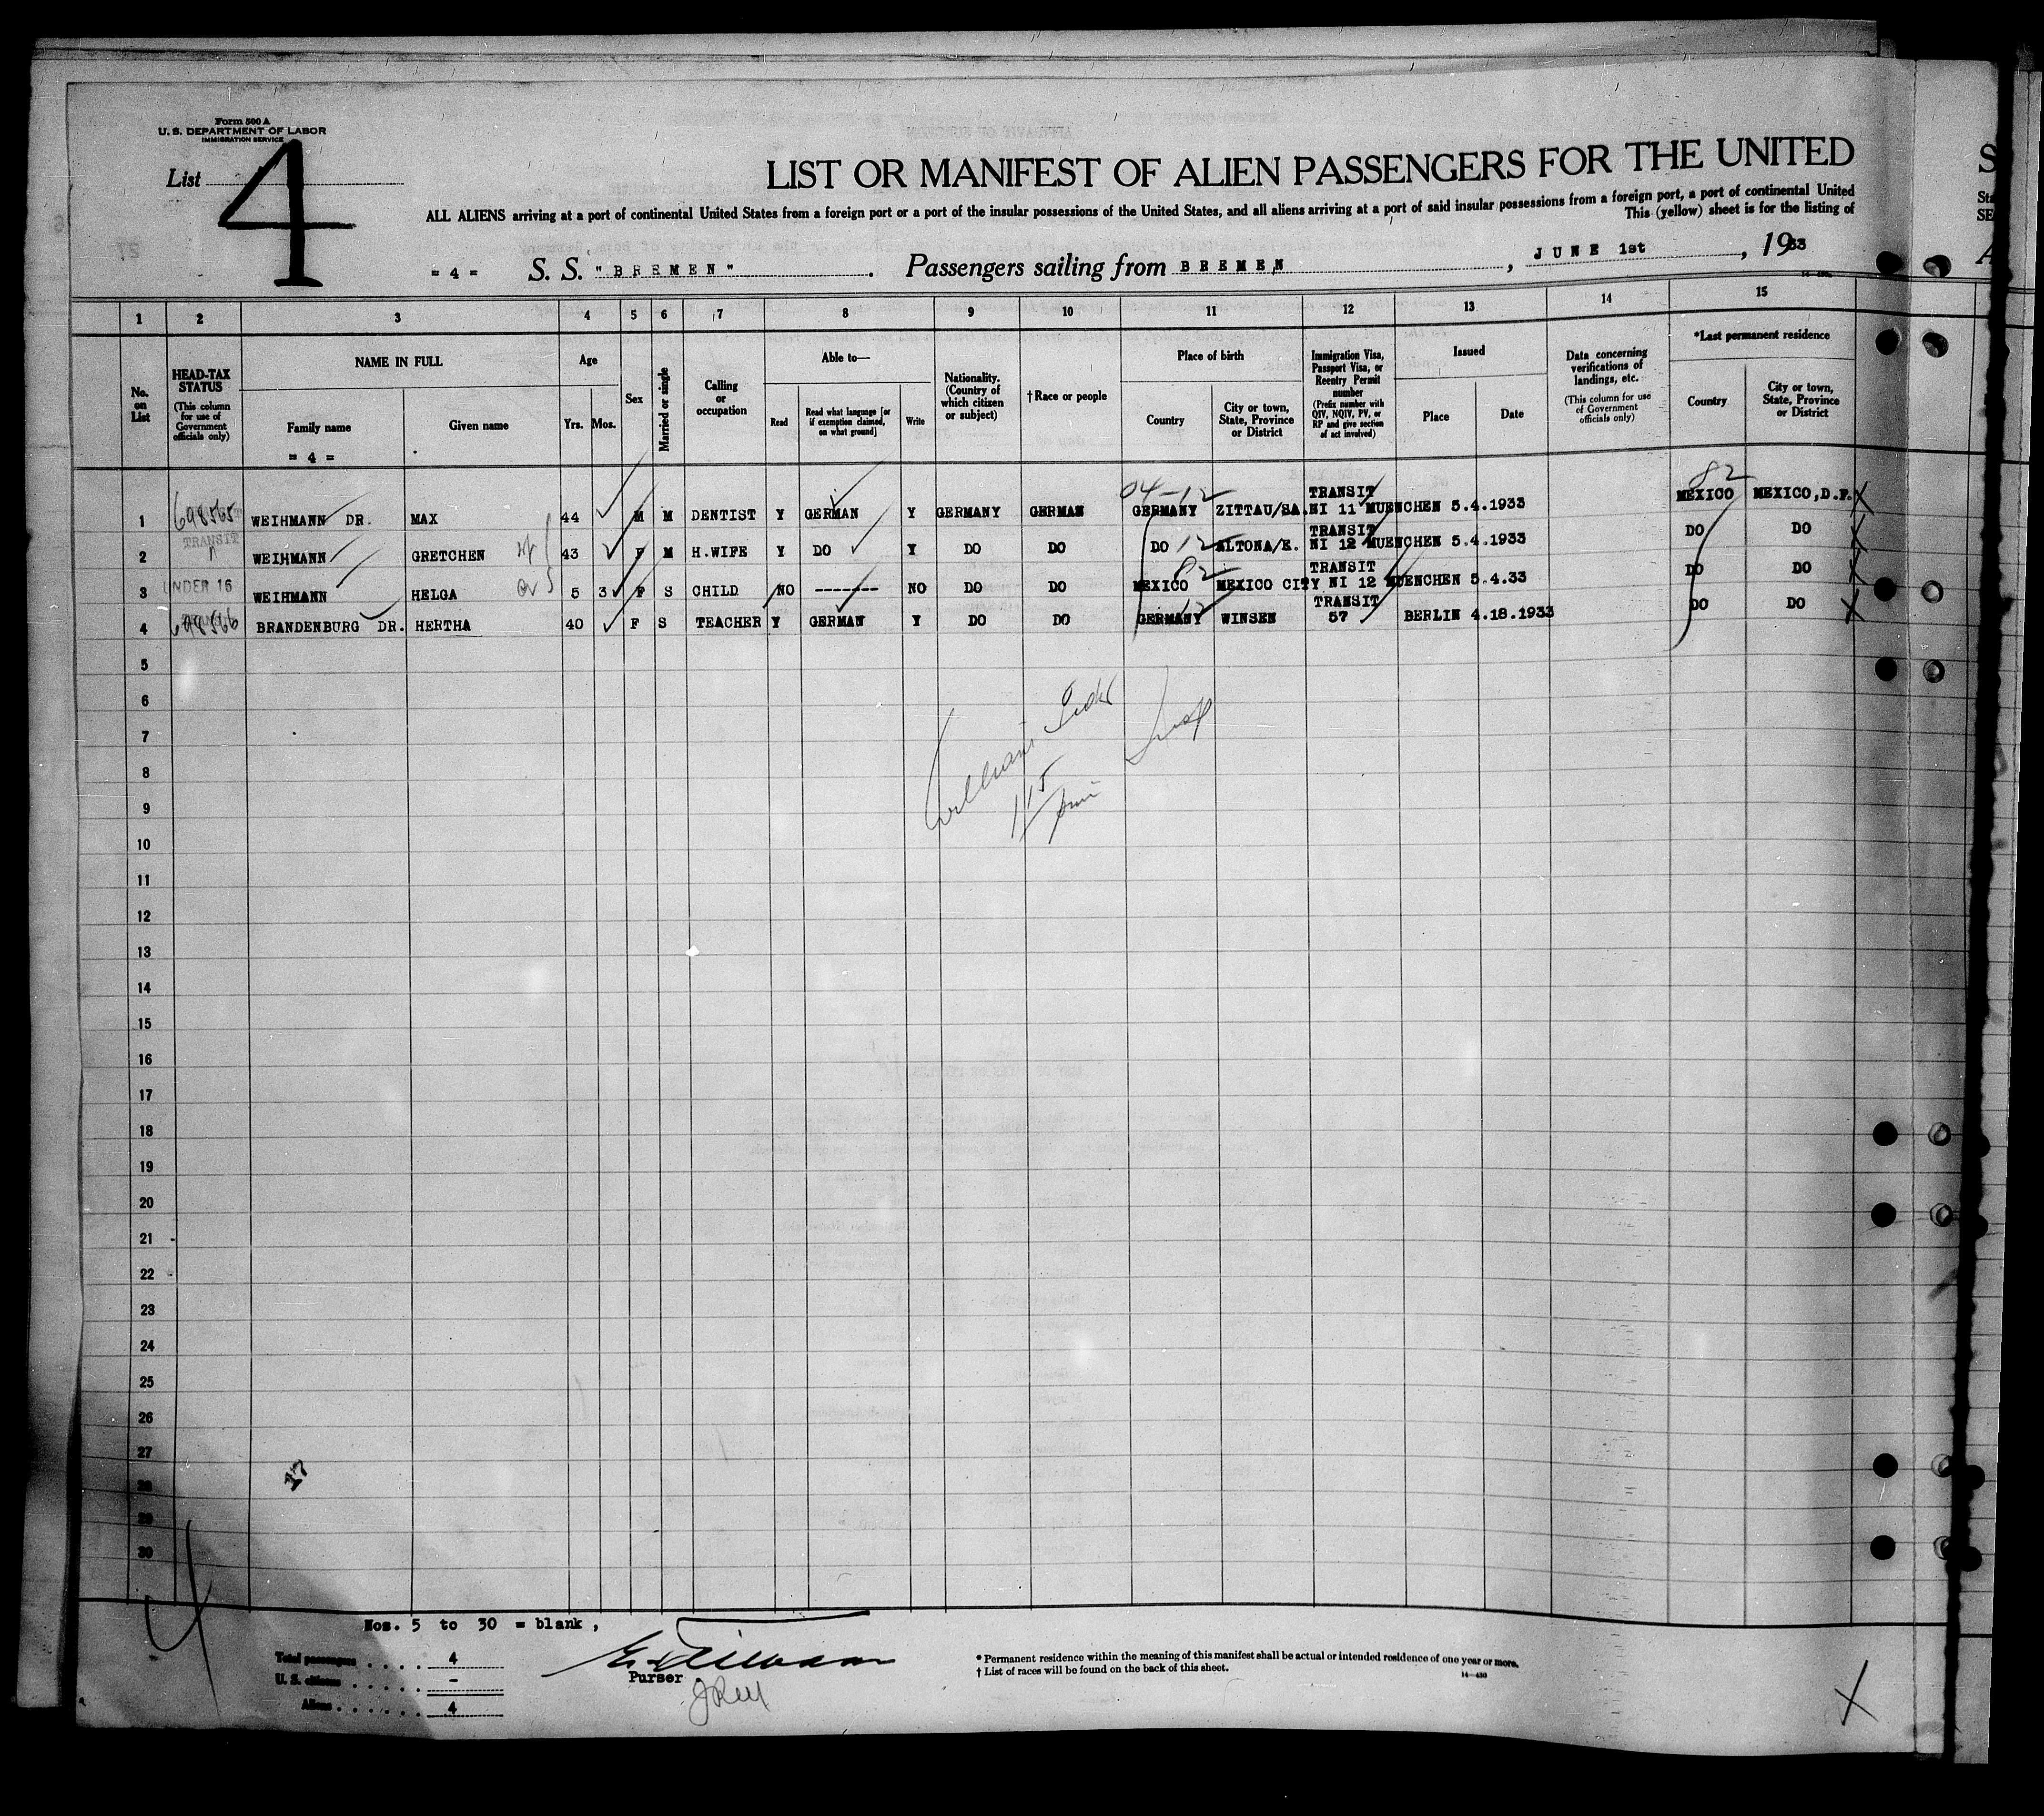 Form 500 A
U. S. DEPARTMENT OF LABOR
IMMIGRATION SERVICE
List 4
LIST OR MANIFEST OF ALIEN PASSENGERS FOR THE UNITED
ALL ALIENS arriving at a port of continental United States from a foreign port or a port of the insular possessions of the United States, and all aliens arriving at a port of said insular possessions from a foreign port, a port of continental United
This (yellow) sheet is for the listing of
= 4 = S. S. "BREMEN". Passengers sailing from BREMEN, JUNE 1st, 1933
1 2 3 4 5 6 7 8 9 10 11 12 13 14 15
No. on List
HEAD-TAX STATUS
(This column for use of Government officials only)
NAME IN FULL
Family name
= 4 =
Given name
Age
Yrs. Mos.
Sex
Married or single
Calling or occupation
Able to—
Read
Read what language [or if exemption claimed, on what ground]
Write
Nationality. (Country of which citizen or subject)
†Race or people
Place of birth
Country
City or town, State, Province or District
Immigration Visa, Passport Visa, or Reentry Permit number
(Prefix number with QIV, NQIV, PV, or RP and give section of act involved)
Issued
Place
Date
Data concerning verifications of landings, etc.
(This column for use of Government officials only)
*Last permanent residence
Country
City or town, State, Province or District
04-12
82
1 698565 WEIHMANN DR. MAX 44 M M DENTIST Y GERMAN Y GERMANY GERMAN GERMANY ZITTAU/SA. TRANSIT NI 11 MUENCHEN 5.4.1933 MEXICO MEXICO, D.F. X
2 TRANSIT WEIHMANN GRETCHEN 43 F M H.WIFE Y DO Y DO DO DO 12 ALTONA/E. TRANSIT NI 12 MUENCHEN 5.4.1933 DO DO X
3 UNDER 16 WEIHMANN HELGA 5 3 F S CHILD NO ------- NO DO DO MEXICO 82 MEXICO CITY TRANSIT NI 12 MUENCHEN 5.4.33 DO DO X
4 698566 BRANDENBURG DR. HERTHA 40 F S TEACHER Y GERMAN Y DO DO GERMANY 12 WINSEN TRANSIT 57 BERLIN 4.18.1933 DO DO X
5
6
7
8
9
10
11
12
13
14
15
16
17
18
19
20
21
22
23
24
25
26
27
28
29
30
William
Insp
115
17
4
Nos. 5 to 30 = blank,
Total passengers 4
U. S. citizens -
Aliens 4
Purser
* Permanent residence within the meaning of this manifest shall be actual or intended residence of one year or more.
† List of races will be found on the back of this sheet.
14—430
X